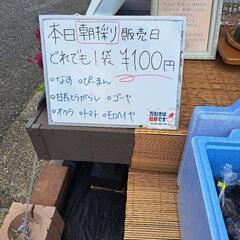 本日朝採り販売日
どれでも1袋¥100円
○なす ○ぴーまん
○甘長とうがらし ○ゴーヤ
○オクラ ○トマト ○モロヘイヤ
万引きは
犯罪です!